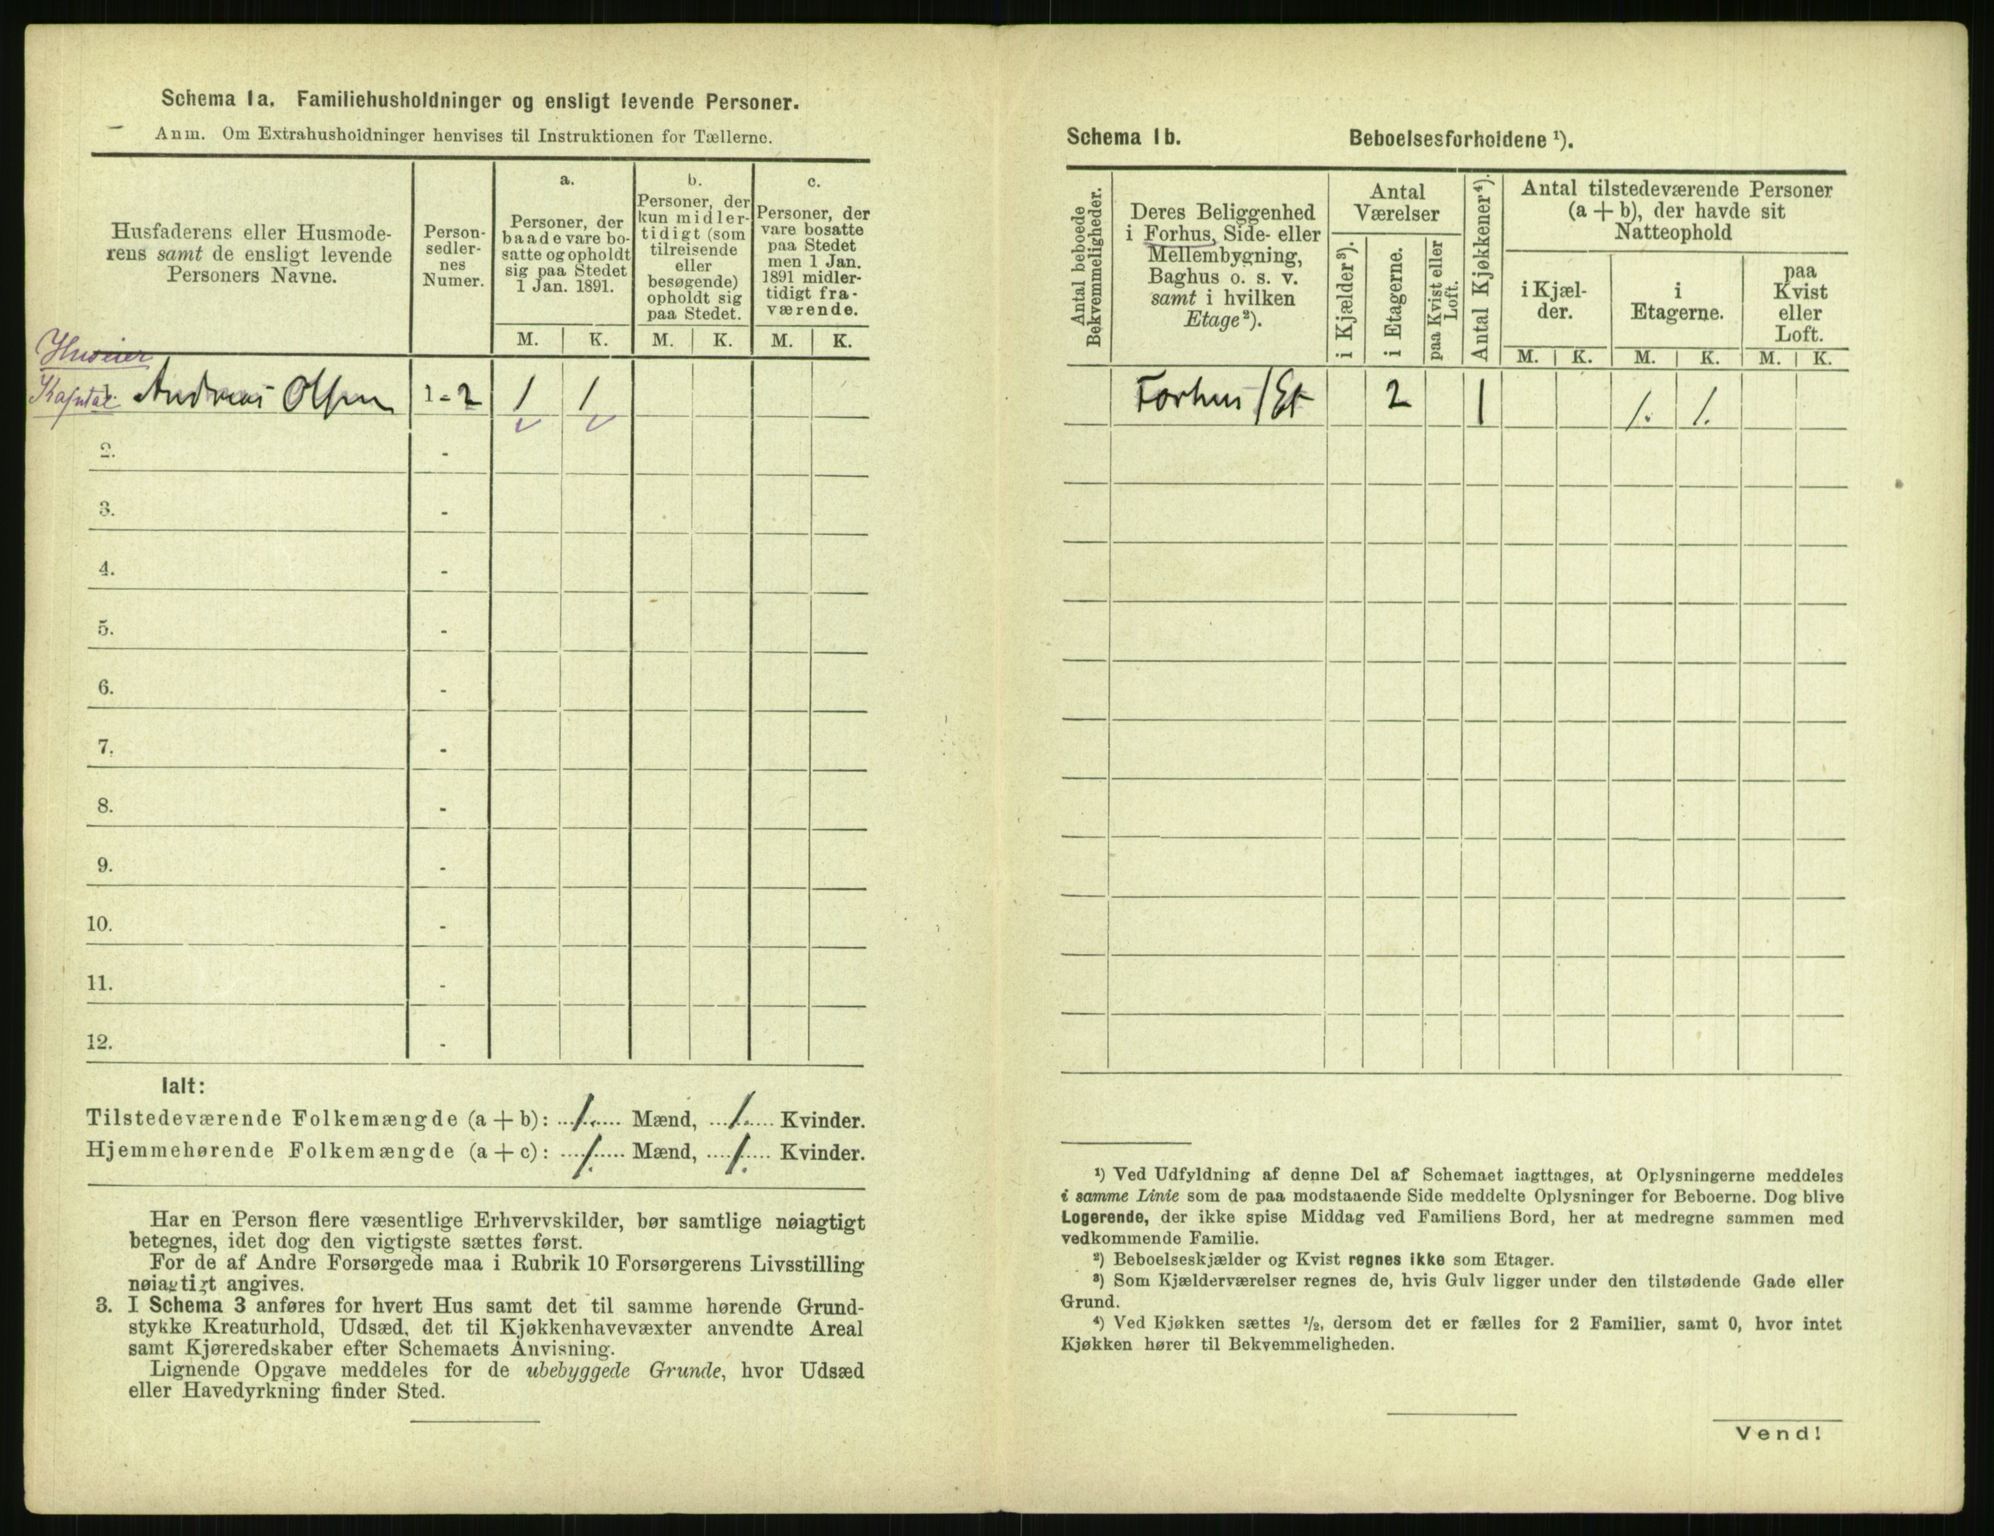 Schema 1a. Familiehusholdninger og ensligt levende Personer.
Anm. Om Extrahusholdninger henvises til Instruktionen for Tællerne.
Husfaderens eller Husmode-
rens samt de ensligt levende
Personers Navne.
Person-
sedler-
nes
Numer.
a.
Personer, der
baade vare bo-
satte og opholdt
sig paa Stedet
1 Jan. 1891.
b.
Personer, der
kun midler-
tidigt (som
tilreisende
eller
besøgende)
opholdt sig
paa Stedet.
c.
Personer, der
vare bosatte
paa Stedet
men 1 Jan.
1891 midler-
tidigt fra-
værende.
M. K. M. K. M. K.
Huseier
Andreas Olsen 1-2 1 1
2. -
3. -
4. -
5. -
6. -
7. -
8. -
9. -
10. -
11. -
12. -
Ialt:
Tilstedeværende Folkemængde (a + b): 1. Mænd, 1. Kvinder.
Hjemmehørende Folkemængde (a + c): 1. Mænd, 1. Kvinder.
Har en Person flere væsentlige Erhvervskilder, bør samtlige nøiagtigt
betegnes, idet dog den vigtigste sættes først.
For de af Andre Forsørgede maa i Rubrik 10 Forsørgerens Livsstilling
nøiagtigt angives.
3. I Schema 3 anføres for hvert Hus samt det til samme hørende Grund-
stykke Kreaturhold, Udsæd, det til Kjøkkenhavevæxter anvendte Areal
samt Kjøreredskaber efter Schemaets Anvisning.
Lignende Opgave meddeles for de ubebyggede Grunde, hvor Udsæd
eller Havedyrkning finder Sted.
Schema 1b. Beboelsesforholdene ¹).
Antal beboede
Bekvemmeligheder.
Deres Beliggenhed
i Forhus, Side- eller
Mellembygning,
Baghus o. s. v.
samt i hvilken
Etage²).
Antal
Værelser
i Kjælder³).
i Etagerne.
paa Kvist eller
Loft.
Antal Kjøkkener⁴).
Antal tilstedeværende Personer
(a + b), der havde sit
Natteophold
i Kjæl-
der.
i
Etagerne.
paa
Kvist
eller
Loft.
M. K. M. K. M. K.
Forhus 1 Et 2 1 1. 1.
¹) Ved Udfyldning af denne Del af Schemaet iagttages, at Oplysningerne meddeles
i samme Linie som de paa modstaaende Side meddelte Oplysninger for Beboerne. Dog blive
Logerende, der ikke spise Middag ved Familiens Bord, her at medregne sammen med
vedkommende Familie.
²) Beboelseskjælder og Kvist regnes ikke som Etager.
³) Som Kjælderværelser regnes de, hvis Gulv ligger under den tilstødende Gade eller
Grund.
⁴) Ved Kjøkken sættes ½, dersom det er fælles for 2 Familier, samt 0, hvor intet
Kjøkken hører til Bekvemmeligheden.
Vend!